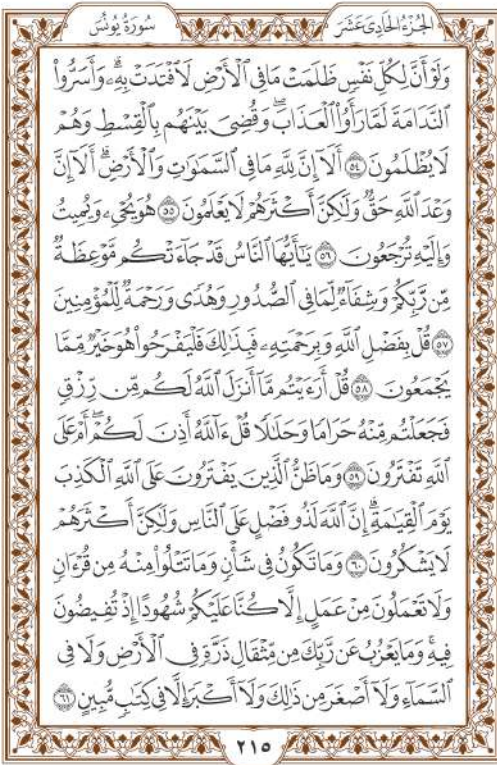 الجُزْءُ الحَادِى عَشَرَ سُورَةُ يُونُسَ
وَلَوْ أَنَّ لِكُلِّ نَفْسٍ ظَلَمَتْ مَا فِي ٱلْأَرْضِ لَٱفْتَدَتْ بِهِۦۗ وَأَسَرُّواْ
ٱلنَّدَامَةَ لَمَّا رَأَوُاْ ٱلْعَذَابَۖ وَقُضِيَ بَيْنَهُم بِٱلْقِسْطِ وَهُمْ
لَا يُظْلَمُونَ ٥٤ أَلَآ إِنَّ لِلَّهِ مَا فِي ٱلسَّمَٰوَٰتِ وَٱلْأَرْضِۗ أَلَآ إِنَّ
وَعْدَ ٱللَّهِ حَقٌّ وَلَٰكِنَّ أَكْثَرَهُمْ لَا يَعْلَمُونَ ٥٥ هُوَ يُحْيِۦ وَيُمِيتُ
وَإِلَيْهِ تُرْجَعُونَ ٥٦ يَٰٓأَيُّهَا ٱلنَّاسُ قَدْ جَآءَتْكُم مَّوْعِظَةٌ
مِّن رَّبِّكُمْ وَشِفَآءٌ لِّمَا فِي ٱلصُّدُورِ وَهُدًى وَرَحْمَةٌ لِّلْمُؤْمِنِينَ
٥٧ قُلْ بِفَضْلِ ٱللَّهِ وَبِرَحْمَتِهِۦ فَبِذَٰلِكَ فَلْيَفْرَحُواْ هُوَ خَيْرٌ مِّمَّا
يَجْمَعُونَ ٥٨ قُلْ أَرَءَيْتُم مَّآ أَنزَلَ ٱللَّهُ لَكُم مِّن رِّزْقٍ
فَجَعَلْتُم مِّنْهُ حَرَامًا وَحَلَٰلًا قُلْ ءَآللَّهُ أَذِنَ لَكُمْۖ أَمْ عَلَى
ٱللَّهِ تَفْتَرُونَ ٥٩ وَمَا ظَنُّ ٱلَّذِينَ يَفْتَرُونَ عَلَى ٱللَّهِ ٱلْكَذِبَ
يَوْمَ ٱلْقِيَٰمَةِۗ إِنَّ ٱللَّهَ لَذُو فَضْلٍ عَلَى ٱلنَّاسِ وَلَٰكِنَّ أَكْثَرَهُمْ
لَا يَشْكُرُونَ ٦٠ وَمَا تَكُونُ فِي شَأْنٍ وَمَا تَتْلُواْ مِنْهُ مِن قُرْءَانٍ
وَلَا تَعْمَلُونَ مِنْ عَمَلٍ إِلَّا كُنَّا عَلَيْكُمْ شُهُودًا إِذْ تُفِيضُونَ
فِيهِۚ وَمَا يَعْزُبُ عَن رَّبِّكَ مِن مِّثْقَالِ ذَرَّةٍ فِي ٱلْأَرْضِ وَلَا فِي
ٱلسَّمَآءِ وَلَآ أَصْغَرَ مِن ذَٰلِكَ وَلَآ أَكْبَرَ إِلَّا فِي كِتَٰبٍ مُّبِينٍ ٦١
٢١٥